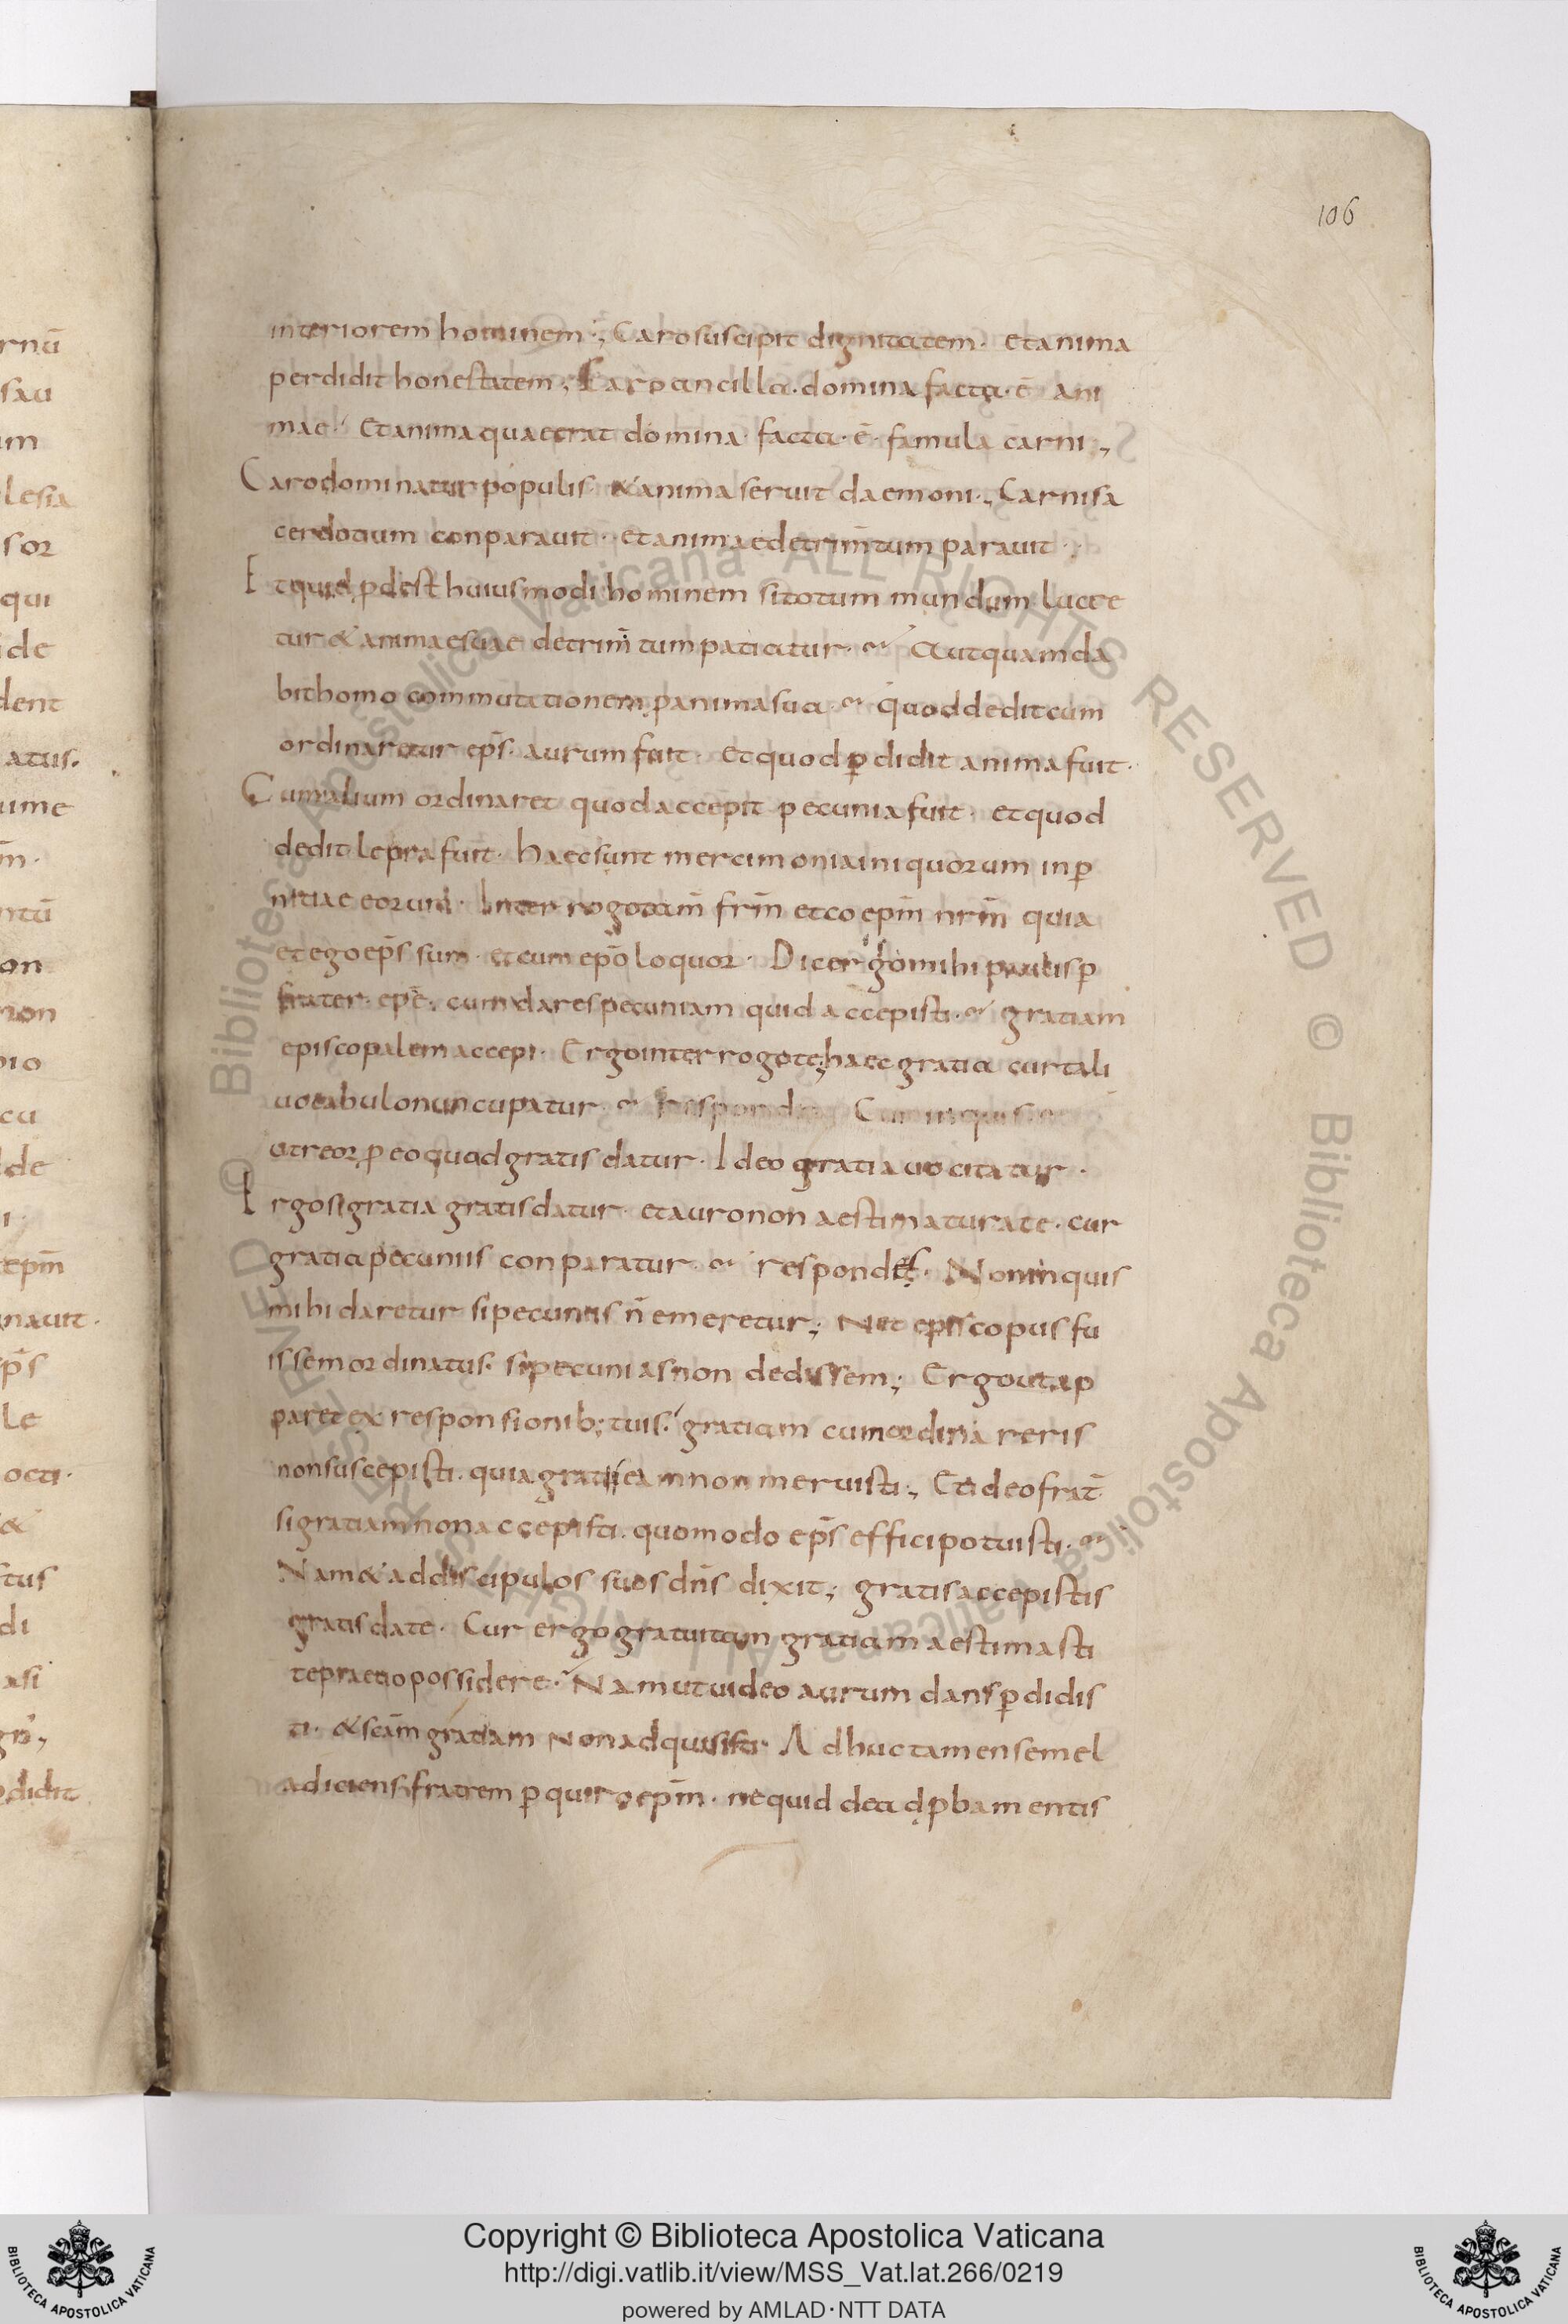 106
interiorem hominem·; Caro suscipit dignitatem· et anima
perdidit honestatem·; Caro ancilla· domina facta· ē ani
mae· Et anima quae erat domina· facta· ē· famula carni·;
Caro dominatur populis & anima seruit daemoni·; Carni sa
cerdotium conparauit· et animae detrim̄tum parauit·
Et quid ꝓdest huiusmodi hominem si totum mundum lucre
tur & animae suae detrim̄tum patiatur· Aut quam da
bit homo commutationem ꝓ anima sua· quod dedit cum
ordinaretur ep̄s· aurum fuit· et quod ꝑdidit anima fuit·
Cum alium ordinaret quod accepit pecunia fuit· et quod
dedit lepra fuit· haec sunt mercimonia iniquorum in ꝑ
nitiae eorum· Interrogo tam̄ fr̄m et coep̄m nr̄m quia
et ego ep̄s sum· et cum ep̄o loquor· Dic ergo mihi paulisꝑ
frater ep̄e· cum dares pecuniam quid accepisti· gratiam
episcopalem accepi· Ergo interrogo te; haec gratia cur tali
uocabulo nuncupatur· Cum inquis
atreor, ꝓ eo quod gratis datur· Ideo gratia uocitatur·
Ergo si gratia gratis datur· et auro non aestimatur a te· cur
gratia pecuniis conparatur· respondes· Non inquis
mihi daretur si pecuniis n̄ emeretur·; Nec episcopus fu
issem ordinatus· si pecunias non dedissem·; Ergo ut ap
paret ex responsionib; tuis· gratiam cum ordinareris
non suscepisti· quia gratis eam non meruisti·; Et ideo frat̄
si gratiam non accepisti· quomodo ep̄s effici potuisti·
Nam & ad discipulos suos dn̄s dixit·; gratis accepistis
gratis date· Cur ergo gratuitam gratiam aestimasti
te praetio possidere· Nam ut uideo aurum dans ꝑdidis
ti· & sc̄am gratiam non adquisisti· Adhuc tamen semel
adiciens fratrem ꝑquiro ep̄m· ne quid dead ꝓbamentis
Copyright © Biblioteca Apostolica Vaticana
http://digi.vatlib.it/view/MSS_Vat.lat.266/0219
powered by AMLAD·NTT DATA